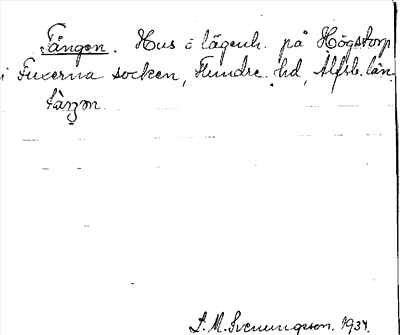 Fången. Hus å lägenh. på Högstorp
i Fuxerna socken, Flundre hd, Älfsb. län.
L. M. Svenungsson. 1934.